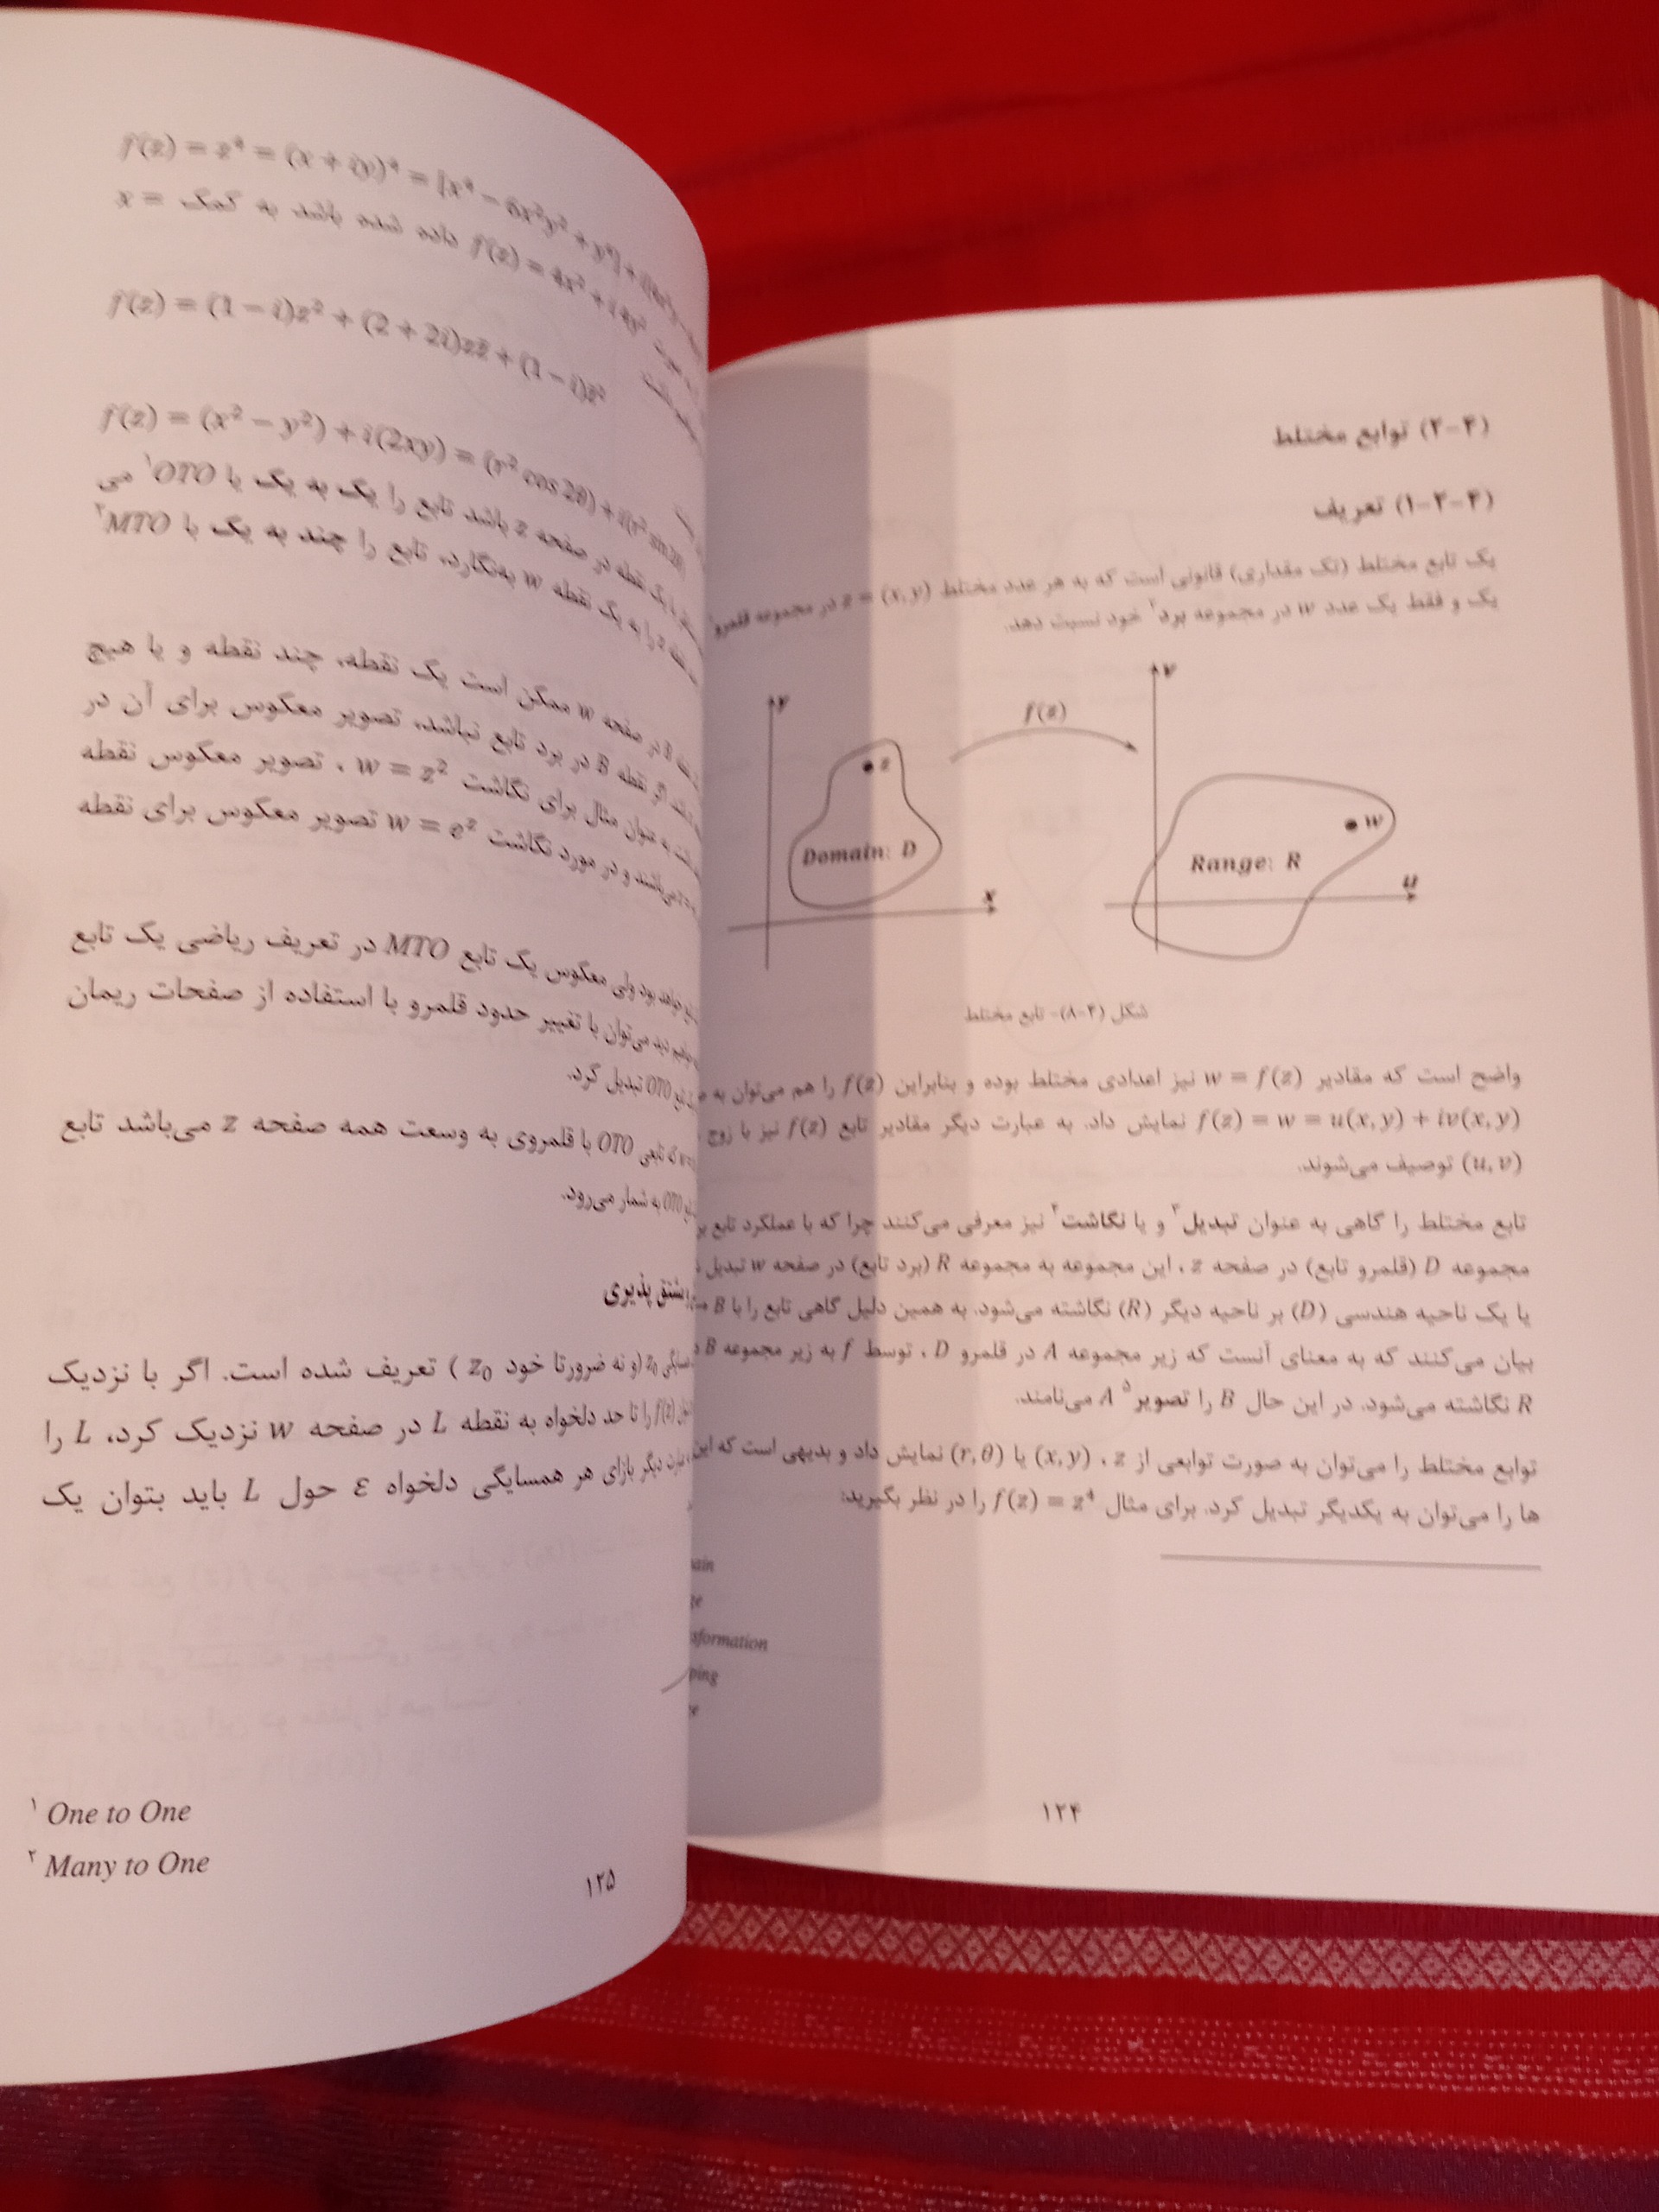 (۴-۲) توابع مختلط
(۴-۲-۱) تعریف
یک تابع مختلط (تک مقداری) قانونی است که به هر عدد مختلط z = (x, y) در مجموعه قلمرو
یک و فقط یک عدد w در مجموعه برد۲ خود نسبت دهد.
y
f(z)
v
z
w
Domain: D
Range: R
x
u
شکل (۴-۸)- تابع مختلط
واضح است که مقادیر w = f(z) نیز اعدادی مختلط بوده و بنابراین f(z) را هم می‌توان به
f(z) = w = u(x, y) + iv(x, y) نمایش داد. به عبارت دیگر مقادیر تابع f(z) نیز با زوج
(u, v) توصیف می‌شوند.
تابع مختلط را گاهی به عنوان تبدیل۳ و یا نگاشت۴ نیز معرفی می‌کنند چرا که با عملکرد تابع بر
مجموعه D (قلمرو تابع) در صفحه z ، این مجموعه به مجموعه R (برد تابع) در صفحه w تبدیل
یا یک ناحیه هندسی (D) بر ناحیه دیگر (R) نگاشته می‌شود. به همین دلیل گاهی تابع را با B
بیان می‌کنند که به معنای آنست که زیر مجموعه A در قلمرو D ، توسط f به زیر مجموعه B
R نگاشته می‌شود. در این حال B را تصویر۵ A می‌نامند.
توابع مختلط را می‌توان به صورت توابعی از z ، (x, y) یا (r, θ) نمایش داد و بدیهی است که این
ها را می‌توان به یکدیگر تبدیل کرد. برای مثال f(z) = z⁴ را در نظر بگیرید:
۱۲۴
f(z) = z⁴ = (x + iy)⁴ = [x⁴ − 6x²y² + y⁴] +
f(z) = 4x² + i4y² داده شده باشد به کمک x =
f(z) = (1 − i)z² + (2 + 2i)zz̄ + (1 − i)z̄²
f(z) = (x² − y²) + i(2xy) = (r² cos 2θ) + i(r² sin 2θ)
یک نقطه در صفحه z باشد تابع را یک به یک یا OTO۱ می
را به یک نقطه w بنگارد، تابع را چند به یک یا MTO۲
در صفحه w ممکن است یک نقطه، چند نقطه و یا هیچ
اگر نقطه B در برد تابع نباشد، تصویر معکوس برای آن در
به عنوان مثال برای نگاشت w = z² ، تصویر معکوس نقطه
می‌باشند و در مورد نگاشت w = eᶻ تصویر معکوس برای نقطه
خواهد بود ولی معکوس یک تابع MTO در تعریف ریاضی یک تابع
خواهیم دید می‌توان با تغییر حدود قلمرو با استفاده از صفحات ریمان
OTO تبدیل کرد.
که تابعی OTO با قلمروی به وسعت همه صفحه z می‌باشد تابع
OTO به شمار می‌رود.
مشتق پذیری
همسایگی z₀ (و نه ضرورتا خود z₀ ) تعریف شده است. اگر با نزدیک
f(z) را تا حد دلخواه به نقطه L در صفحه w نزدیک کرد، L را
عبارت دیگر بازای هر همسایگی دلخواه ε حول L باید بتوان یک
۱ One to One
۲ Many to One
۱۲۵